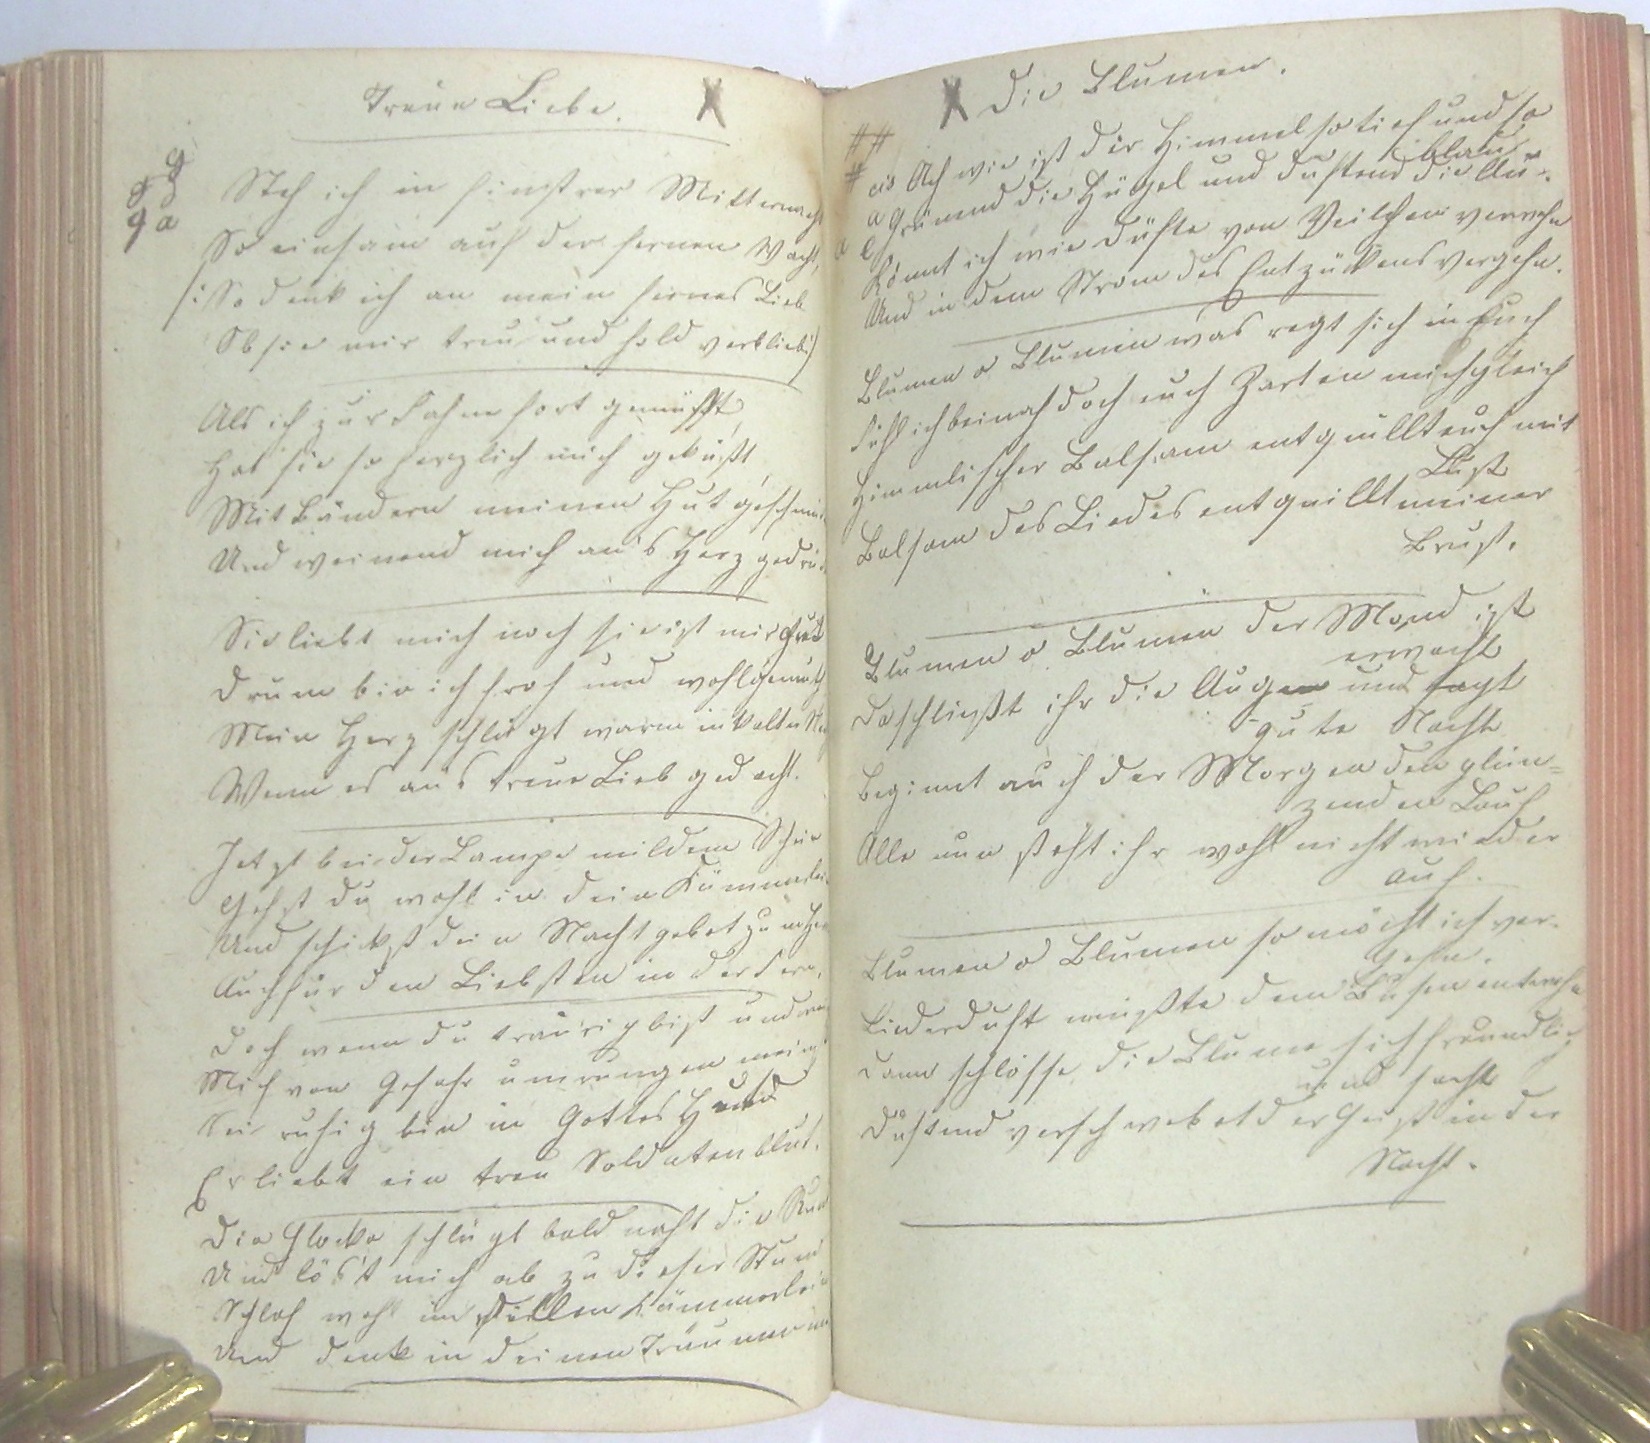 Treue Liebe.
Steh ich in finstrer Mitternacht
So einsam auf der fernen Wacht,
/: So denk ich an mein fernes Lieb
Ob sie mir treu und hold verblieb :/
Als ich zur Fahne fort gemüßt,
Hat sie so herzlich mich geküßt
Mit Bändern meinen Hut geschmü
Und weinend mich ans Herz gedrü
Sie liebt mich noch sie ist mir gut
Drum bin ich froh und wohlgemuth
Mein Herz schlägt warm in kalter
Wenn es ans treue Lieb gedacht.
Jetzt bei der Lampe mildem Schein
Gehst du wohl in dein Kämmerlei
Und schickst dein Nachtgebet zum Her
Auch für den Liebsten in der Fern.
Doch wenn du traurig bist und
Mich von Gefahr umrungen meinst
Sei ruhig bin in Gottes Hand
Er liebt ein treu Soldatenblut.
Die Glocke schlägt bald naht die Rund
Und löst mich ab zu dieser Stund
Schlaf wohl im stillen Kämmerlein
Und denk in deinen Träumen
Die Blumen.
Ach wie ist der Himmel so tief und so
blau
Grünend die Hügel und duftend die Au.
Könnt ich wie Düfte von Veilchen verwehn
Und in dem Strom des Entzückens vergehn.
Blumen o Blumen was regt sich in Euch
Fühl ich beinah doch euch Zarten mich gleich
Himmlischer Balsam entquillt euch mit
Lust
Balsam des Liedes entquillt meiner
Brust.
Blumen o Blumen der Mond ist
erwacht
Da schließt ihr die Augen und sagt
gute Nacht
Beginnt auch der Morgen den glän=
zenden Lauf
Alle nun steht ihr wohl nicht wieder
auf.
Blumen o Blumen so möcht ich ver-
gehn.
Liederduft müßte dem Busen entwehn
Dann schlösse die Blume sich freundlich
und sacht
Duftend verschwebet der Geist in der
Nacht.